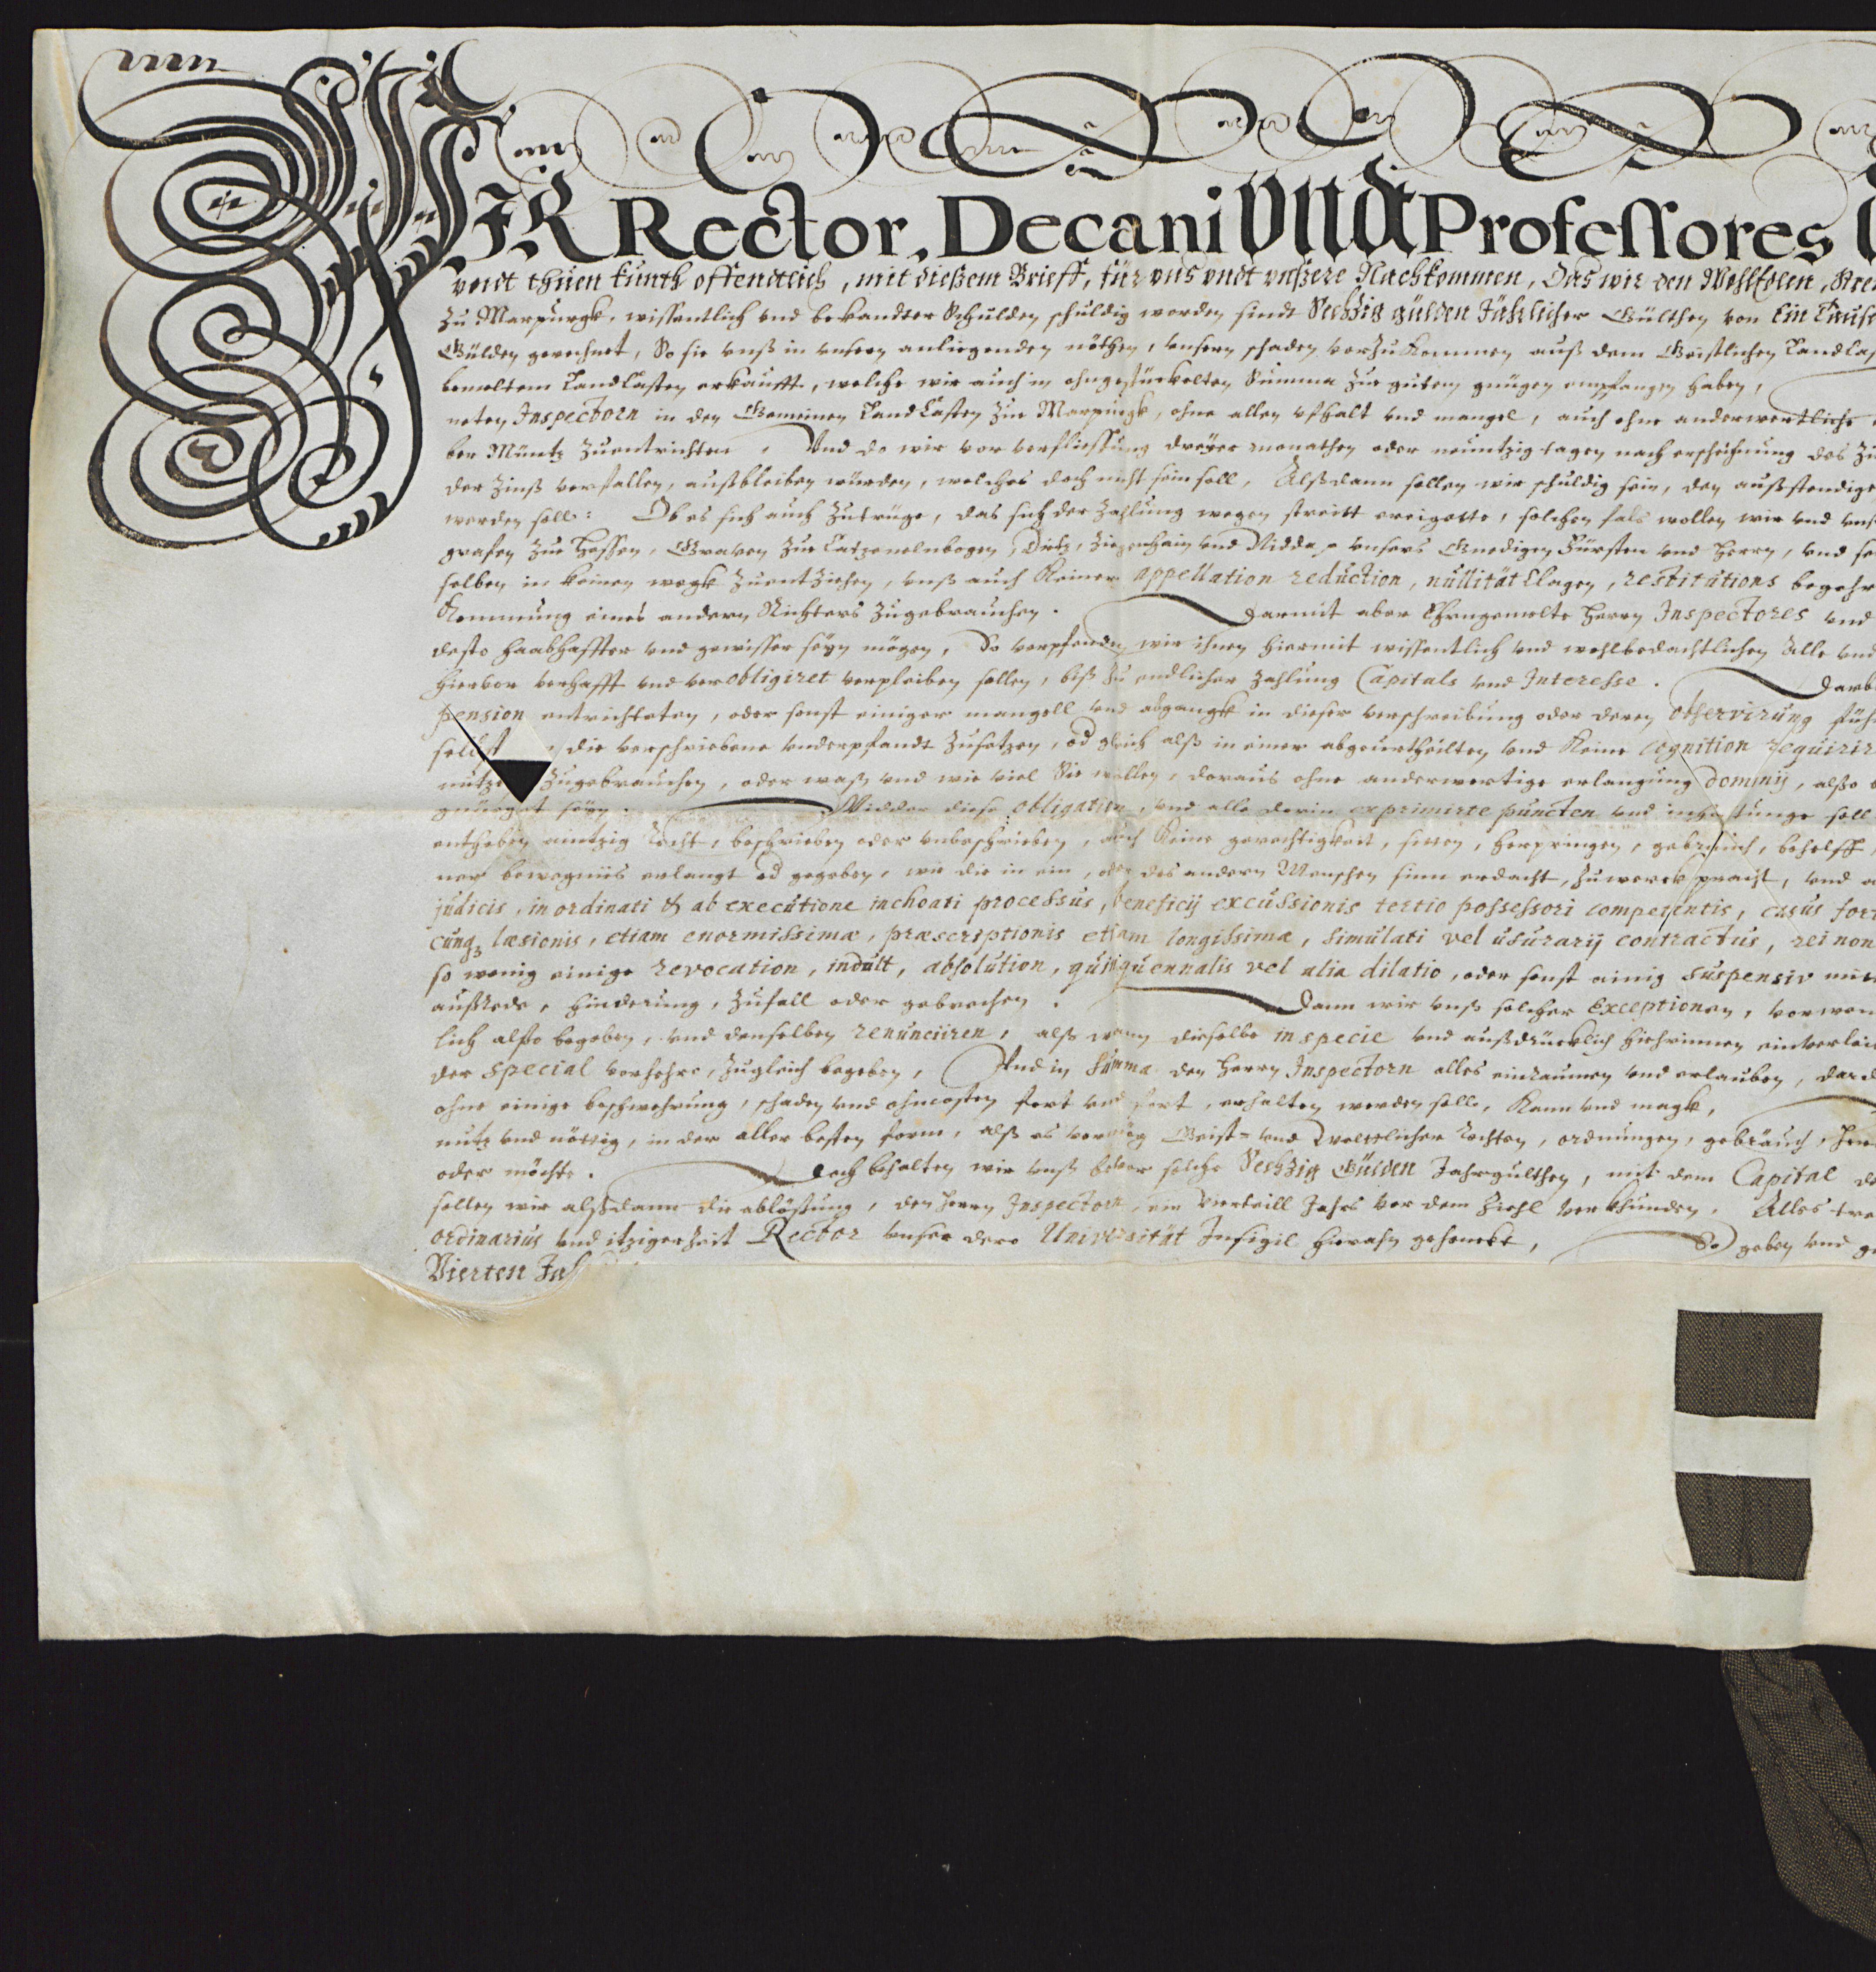 WIR Rector, Decani Vndt Professores
vndt thuen kunth offendtlich, mit dießem Brieff, für vns vndt vnßere Nachkommen, Das wir den Wohledlen,
zu Marpurgk, wissentlich vnd bekandter Schulden schuldig worden sindt Sechzig gülden Jährlicher Gülthen von Ein Tause
Gülden gerechnet, So sie vnß in vnsern anliegenden nöthen, vnsern schaden vorzukommen auß dem Geistlichen Landkas
bemeltem Landkasten erkaufft, welche wir auch in ohngestückelten Summa zur gutem gnügen empfangen haben,
neten Inspectorn in den Gemeinen Landkasten zue Marpurgk, ohne allen vfhalt vnd mangel, auch ohne anderwertliche
ber Müntz zuentrichten, Vnd do wir vor verfliessung dreyer monathen oder neuntzig tagen nach erscheinung des Zi
der Zinß verfallen, außbleiben würden, welches doch nicht sein soll, Alßdann sollen wir schuldig sein, den außstendige
werden soll: Ob es sich auch zutrüge, das sich der Zahlung wegen streitt ereigette, solchen fals wollen wir vnd vns
grafen zue Hessen, Graven zue Catzenelnbogen, Dietz, Ziegenhain vnd Nidda, vnsers Gnedigen Fürsten vnd Herrn, vnd se
selben in keinen wegk zuentziehen, vnß auch Keiner appellation reduction, nullität Clagen, restitutions begehr
Kommung eines andern Richters zugebrauchen. Darmit aber Ehrngemelte Herrn Inspectores vnd
desto haabhaffter vnd gewisser seyn mögen, So verpfenden wir ihnen hiermit wissentlich vnd wohlbedachtlichen Alle vnd
hiervor verhafft vnd verobligiret verpleiben sollen, biß zu endlicher zahlung Capitals vnd Interesse. Darb
pension entrichteten, oder sonst einiger mangell vnd abgangk in dieser verschreibung oder deren observirung füh
selbst die verschriebene vnderpfandt zusetzen, od gleich alß in einer abgeurtheilten vnd Keine cognition requirir
nutze zugebrauchen, oder waß vnd wie viel Sie wollen, daraus ohne anderwertige erlangung dominij, alßo
gnüeget seyn. Widder diese obligation, vnd alle darin exprimirte puncten vnd inhaltunge soll
entheben eintzig Recht, beschrieben oder vnbeschrieben, auch Keine gerechtigkeit, sitten, herpringen, gebrauch, behelff,
ner bewegnüs erlangt od gegeben, wie die in ein, oder des andern Menschen sinn erdacht, zuwerck pracht, vnd
judicis, in ordinati & ab executione inchoati processus, beneficij excussionis tertio possessori competentis, casus for
cunq; læsionis, etiam enormissimæ, præscriptionis etiam longissimæ, simulati vel usurarij contractus, rei non
so wenig einige revocation, indult, absolution, quinquennalis vel alia dilatio, oder sonst einig suspensiv mit
außRede, hinderung, zufall oder gebrechen. Dann wir vnß solcher Exceptionen, vorwen
lich alßo begeben, vnd denselben renunciiren, alß wenn dieselbe in specie vnd außdrücklich hiehrinnen einverlei
der special vorhehre, zugleich begeben, Vnd in Summa den Herrn Inspectorn alles einraumen vnd erlauben, dard
ohne einige beschwehrung, schaden vnd ohncosten fort vnd fort, erhalten werden solle, Kann vnd magk,
nutz vnd nöttig, in der aller besten form, alß es vermög Geist= vnd Weltlicher Rechten, ordnungen, gebräuch,
oder möchte. Doch behalten wir vnß bevor solche Sechzig Gülden Jahrgülthen, mit dem Capital
sollen wir alßdann die ablößung, den Herrn Inspectorn, ein Vierteill Jahrs vor dem Ziehl verkhünden, Alles tre
ordinarius vnd itziger Zeit Rector vnser dero Universität Insigil hieran gehenckt, So geben vnd g
Vierten Jah